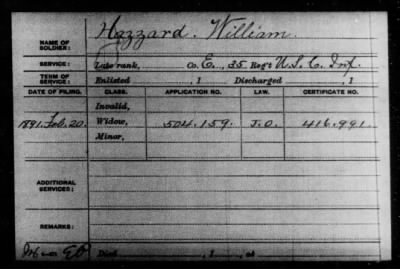 NAME OF SOLDIER: Hazzard, William
SERVICE: Late rank, Co. E., 35 Reg't U.S.C. Inf.
TERM OF SERVICE: Enlisted , 1 Discharged , 1
DATE OF FILING. CLASS. APPLICATION NO. LAW. CERTIFICATE NO.
Invalid,
1891. Feb. 20. Widow, 504.159. J.O. 416.991
Minor,
ADDITIONAL SERVICES:
REMARKS:
Died , 1 , at